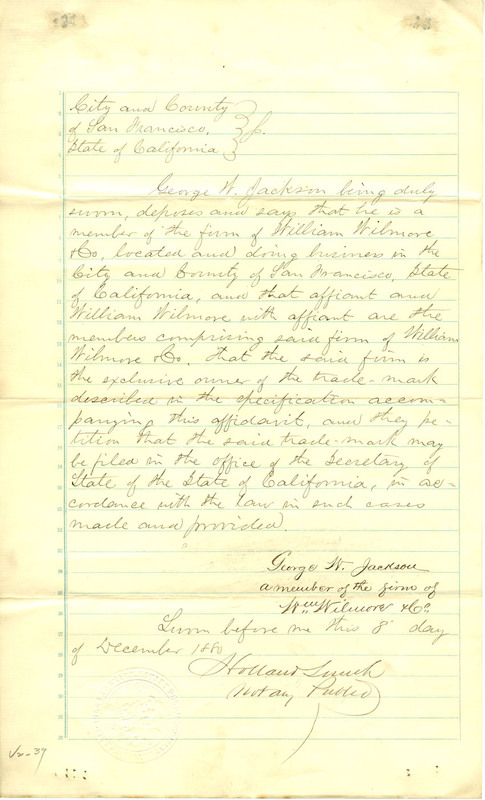 City and County
of San Francisco,
State of California
George W. Jackson being duly
sworn, deposes and says that he is a
member of the firm of William Wilmore
& Co. located and doing business in the
City and County of San Francisco, State
of California, and that affiant and
William Wilmore with affiant are the
members comprising said firm of William
Wilmore & Co. that the said firm is
the exclusive owner of the trade-mark
described in the specification accom-
panying this affidavit, and they pe-
tition that the said trade-mark may
be filed in the office of the Secretary of
State of the State of California, in ac-
cordance with the law in such cases
made and provided.
George W. Jackson
a member of the firm of
Wm Wilmore & Co
Sworn before me this 8 day
of December 1880
Holland Smith
Notary Public